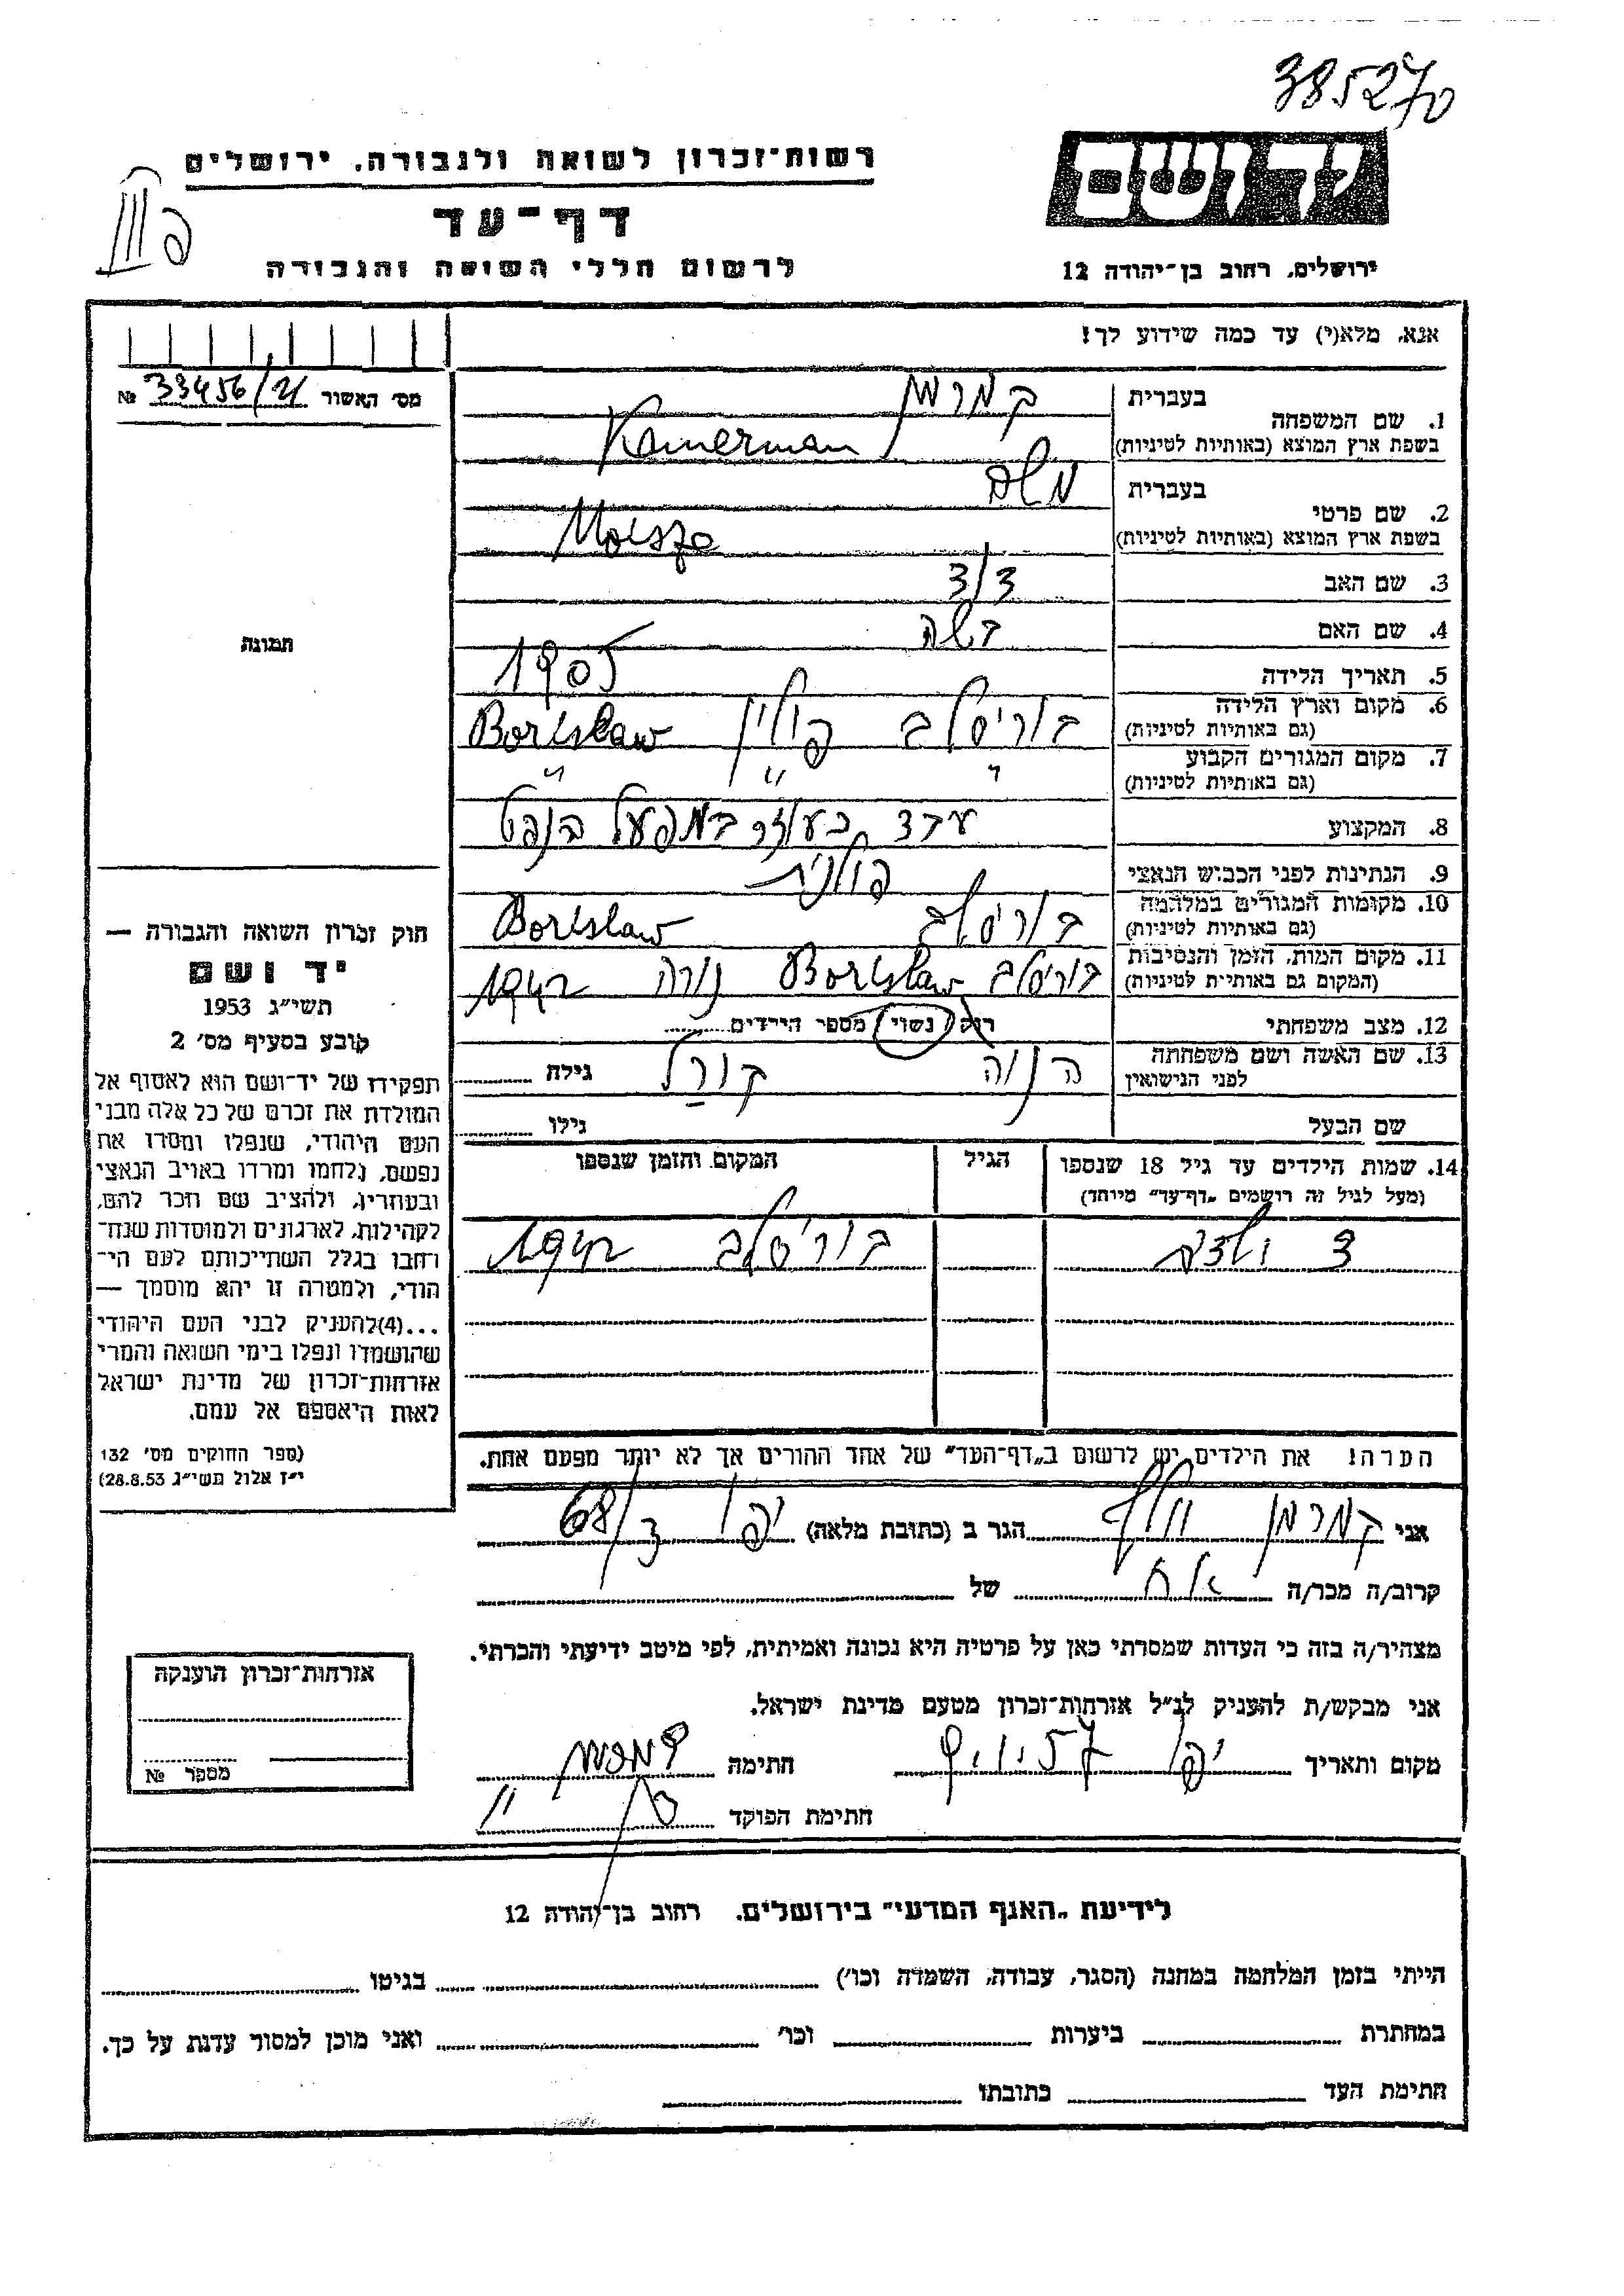 38527
רשות-זכרון לשואה ולגבורה, ירושלים
יד ושם
דף-עד
לרשום חללי השואה והגבורה
ירושלים, רחוב בן-יהודה 12
אנא, מלא(י) עד כמה שידוע לך!
מס' האשור 33456/21 №
1. שם המשפחה
בעברית קמרמן
בשפת ארץ המוצא (באותיות לטיניות) Kamerman
2. שם פרטי
בעברית משה
בשפת ארץ המוצא (באותיות לטיניות)
3. שם האב
4. שם האם
5. תאריך הלידה 1905
6. מקום וארץ הלידה (גם באותיות לטיניות) בוריסלב פולין Borislaw
7. מקום המגורים הקבוע (גם באותיות לטיניות) " " "
8. המקצוע במפעל
9. הנתינות לפני הכבוש הנאצי פולנית
10. מקומות המגורים במלחמה (גם באותיות לטיניות) בוריסלב Borislaw
11. מקום המות, הזמן והנסיבות (המקום גם באותיות לטיניות) בוריסלב Borislaw נורה 1942
12. מצב משפחתי רווק נשוי מספר הילדים
13. שם האשה ושם משפחתה לפני הנישואין גילה
שם הבעל גילו
14. שמות הילדים עד גיל 18 שנספו
(מעל לגיל זה רושמים "דף-עד" מיוחד)
הגיל
המקום והזמן שנספו
בוריסלב 1942
הערה! את הילדים יש לרשום ב"דף-העד" של אחד ההורים אך לא יותר מפעם אחת.
תמונה
חוק זכרון השואה והגבורה —
יד ושם
תשי"ג 1953
קובע בסעיף מס' 2
תפקידו של יד-ושם הוא לאסוף אל
המולדת את זכרם של כל אלה מבני
העם היהודי, שנפלו ומסרו את
נפשם, נלחמו ומרדו באויב הנאצי
ובעוזריו, ולהציב שם וזכר להם,
לקהילות, לארגונים ולמוסדות שנח-
רבו בגלל השתייכותם לעם הי-
הודי, ולמטרה זו יהא מוסמך —
...(4)להעניק לבני העם היהודי
שהושמדו ונפלו בימי השואה והמרי
אזרחות-זכרון של מדינת ישראל
לאות היאספם אל עמם.
(ספר החוקים מס' 132
י"ז אלול תשי"ג 28.8.53)
אני קמרמן הגר ב (כתובת מלאה) יפו
קרוב/ה מכר/ה אח של
מצהיר/ה בזה כי העדות שמסרתי כאן על פרטיה היא נכונה ואמיתית, לפי מיטב ידיעתי והכרתי.
אני מבקש/ת להעניק לנ"ל אזרחות-זכרון מטעם מדינת ישראל.
מקום ותאריך יפו חתימה
חתימת הפוקד
אזרחות-זכרון הוענקה
מספר №
לידיעת "האגף המדעי" בירושלים. רחוב בן-יהודה 12
הייתי בזמן המלחמה במחנה (הסגר, עבודה, השמדה וכו') בגיטו
במחתרת ביערות וכו' ואני מוכן למסור עדות על כך.
חתימת העד כתובתו